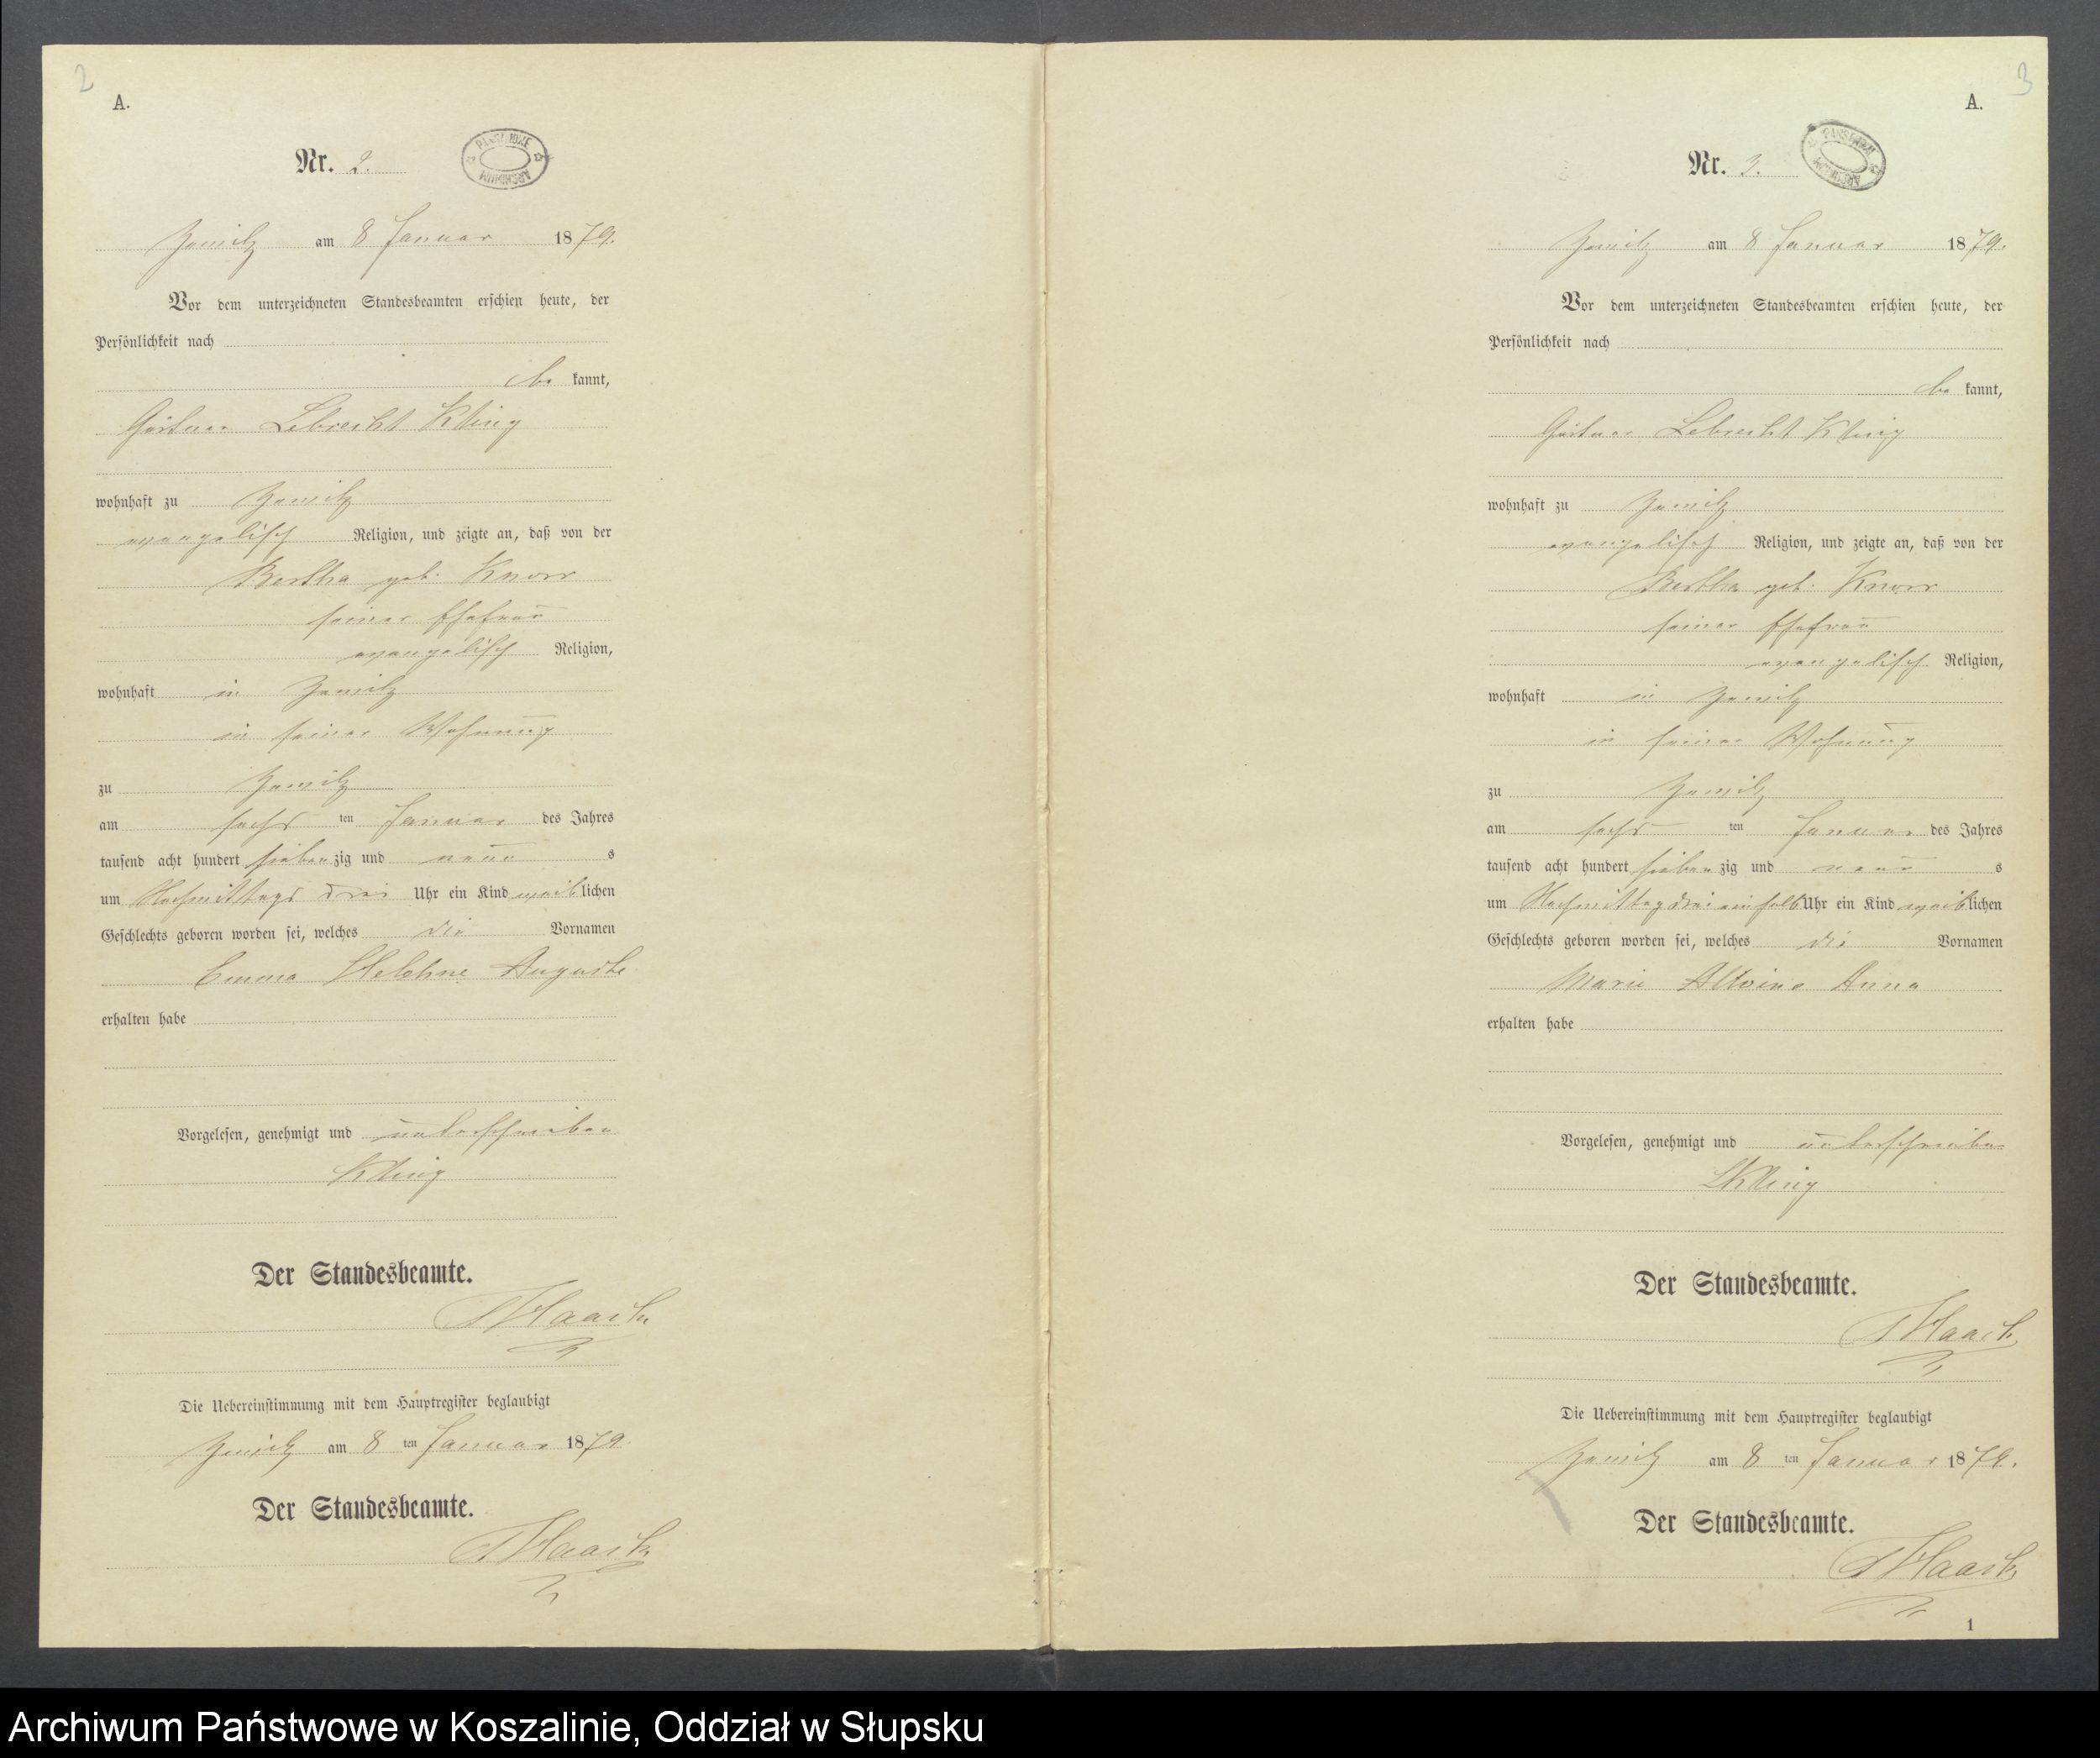 2
A.
Nr. 2.
PAŃSTWOWE
ARCHIWUM
Zemitz am 8 Januar 1879.
Vor dem unterzeichneten Standesbeamten erschien heute, der
Persönlichkeit nach
be kannt,
Gärtner Lebrecht Kling
wohnhaft zu Zemitz
evangelisch Religion, und zeigte an, daß von der
Bertha geb. Knorr
seiner Ehefrau
evangelisch Religion,
wohnhaft in Zemitz
in seiner Wohnung
zu Zemitz
am sechs ten Januar des Jahres
tausend acht hundert sieben zig und neun s
um Nachmittags drei Uhr ein Kind weib lichen
Geschlechts geboren worden sei, welches die Vornamen
Emma Helehne Auguste
erhalten habe
Vorgelesen, genehmigt und unterschrieben
Kling
Der Standesbeamte.
Haack
Die Uebereinstimmung mit dem Hauptregister beglaubigt
Zemitz am 8 ten Januar 1879.
Der Standesbeamte.
Haack
3
A.
Nr. 3.
PAŃSTWOWE
ARCHIWUM
Zemitz am 8 Januar 1879.
Vor dem unterzeichneten Standesbeamten erschien heute, der
Persönlichkeit nach
be kannt,
Gärtner Lebrecht Kling
wohnhaft zu Zemitz
evangelisch Religion, und zeigte an, daß von der
Bertha geb. Knorr
seiner Ehefrau
evangelisch Religion,
wohnhaft in Zemitz
in seiner Wohnung
zu Zemitz
am sechs ten Januar des Jahres
tausend acht hundert sieben zig und neun s
um Nachmittag drei einhalb Uhr ein Kind weib lichen
Geschlechts geboren worden sei, welches die Vornamen
Marie Alwine Anna
erhalten habe
Vorgelesen, genehmigt und unterschrieben
L Kling
Der Standesbeamte.
Haack
Die Uebereinstimmung mit dem Hauptregister beglaubigt
Zemitz am 8 ten Januar 1879.
Der Standesbeamte.
Haack
1
Archiwum Państwowe w Koszalinie, Oddział w Słupsku